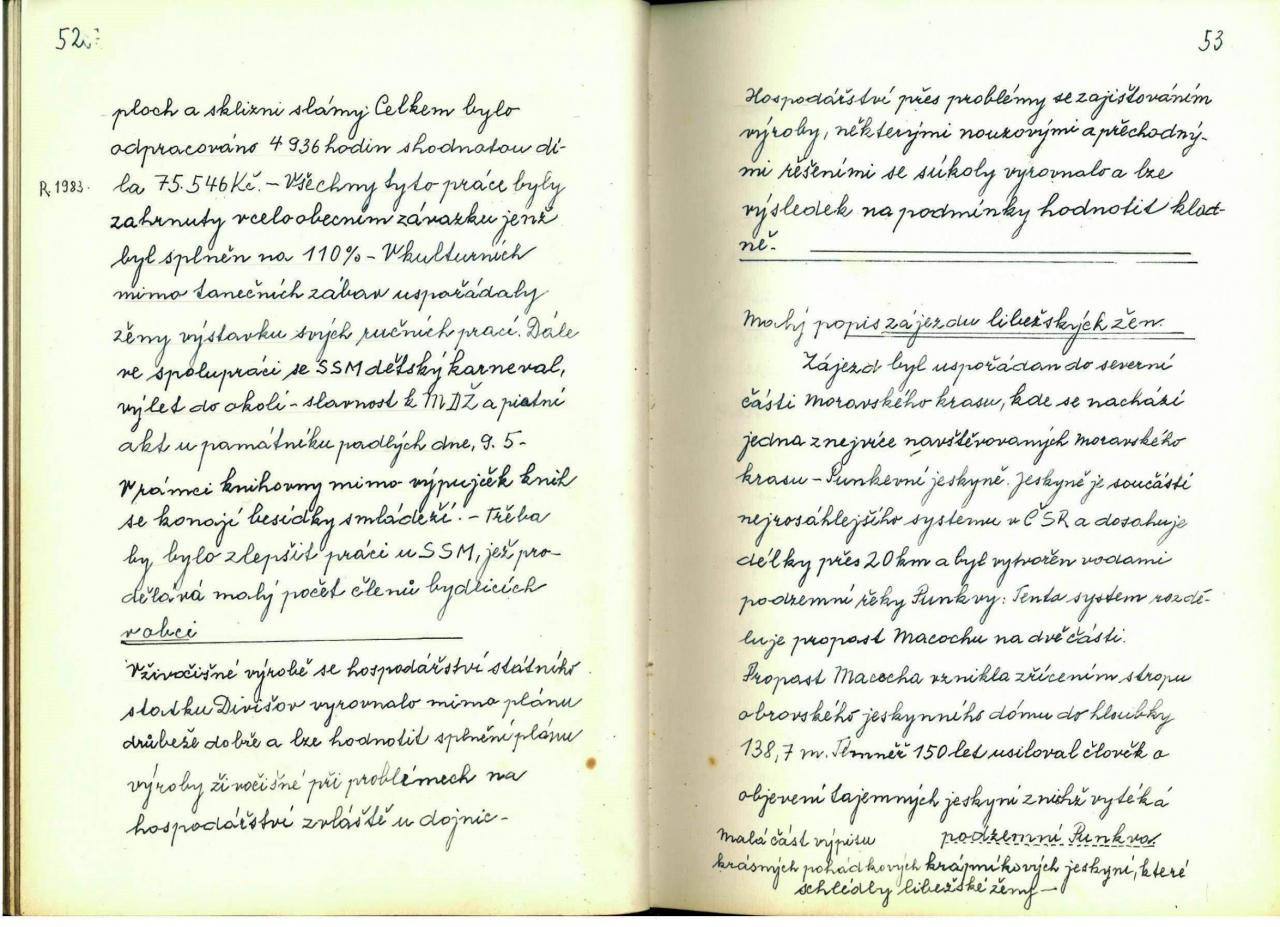 52
ploch a sklizni slámy. Celkem bylo
odpracováno 4 936 hodin s hodnotou dí-
R. 1983.
la 75.546 Kč. – Všechny tyto práce byly
zahrnuty v celoobecním závazku jenž
byl splněn na 110% – V kulturních
mimo tanečních zábav uspořádaly
ženy výstavku svých ručních prací. Dále
ve spolupráci se SSM dětský karneval,
výlet do okolí – slavnost k MDŽ a pietní
akt u památníku padlých dne, 9. 5 –
V rámci knihovny mimo výpujček knih
se konají besídky s mládeží. – Třeba
by bylo zlepšit práci u SSM, jež pro-
dělává malý počet členů bydlících
v obci
V živočišné výrobě se hospodářství státního
statku Divišov vyrovnalo mimo plánu
drůbeže dobře a lze hodnotit splnění plánu
výroby živočišné při problémech na
hospodářství zvláště u dojnic –
53
Hospodářství přes problémy se zajišťováním
výroby, některými nouzovými a přechodný-
mi řešeními se s úkoly vyrovnalo a lze
výsledek na podmínky hodnotit klad-
ně.
Malý popis zájezdu libežských žen.
Zájezd byl uspořádan do severní
části Moravského krasu, kde se nachází
jedna z nejvíce navštěvovaných Moravského
krasu – Punkevní jeskyně. Jeskyně je součástí
nejrosáhlejšího systemu v ČSR a dosahuje
délky přes 20 km a byl vytvořen vodami
podzemní řeky Punkvy: Tento system rozdě-
luje propast Macochu na dvě části.
Propast Macocha vznikla zřícením stropu
obrovského jeskynního dómu do hloubky
138,7 m. Témněř 150 let usiloval člověk o
objevení tajemných jeskyní z nichž vytéká
podzemní Punkva.
Malá část výpisu
krásných pohádkových krápníkových jeskyní, které
schlédly libežské ženy –